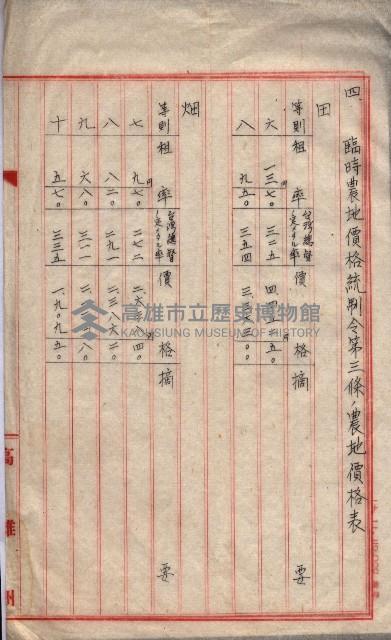 四、臨時農地價格統制令第三條ノ農地價格表
田
等則 租率 台湾總督ノ定メタル率 價格 摘要
六 一三.七〇円 三二五
八 九.五〇 三五四
畑
等則 租率 台湾總督ノ定メタル率 價格 摘要
七 九.七〇円 二七二
八 八.二〇 二九一
九 六.八〇
十 五.七〇 三三五 一、九〇九.五〇
高雄州
高雄市立歷史博物館
KAOHSIUNG MUSEUM OF HISTORY